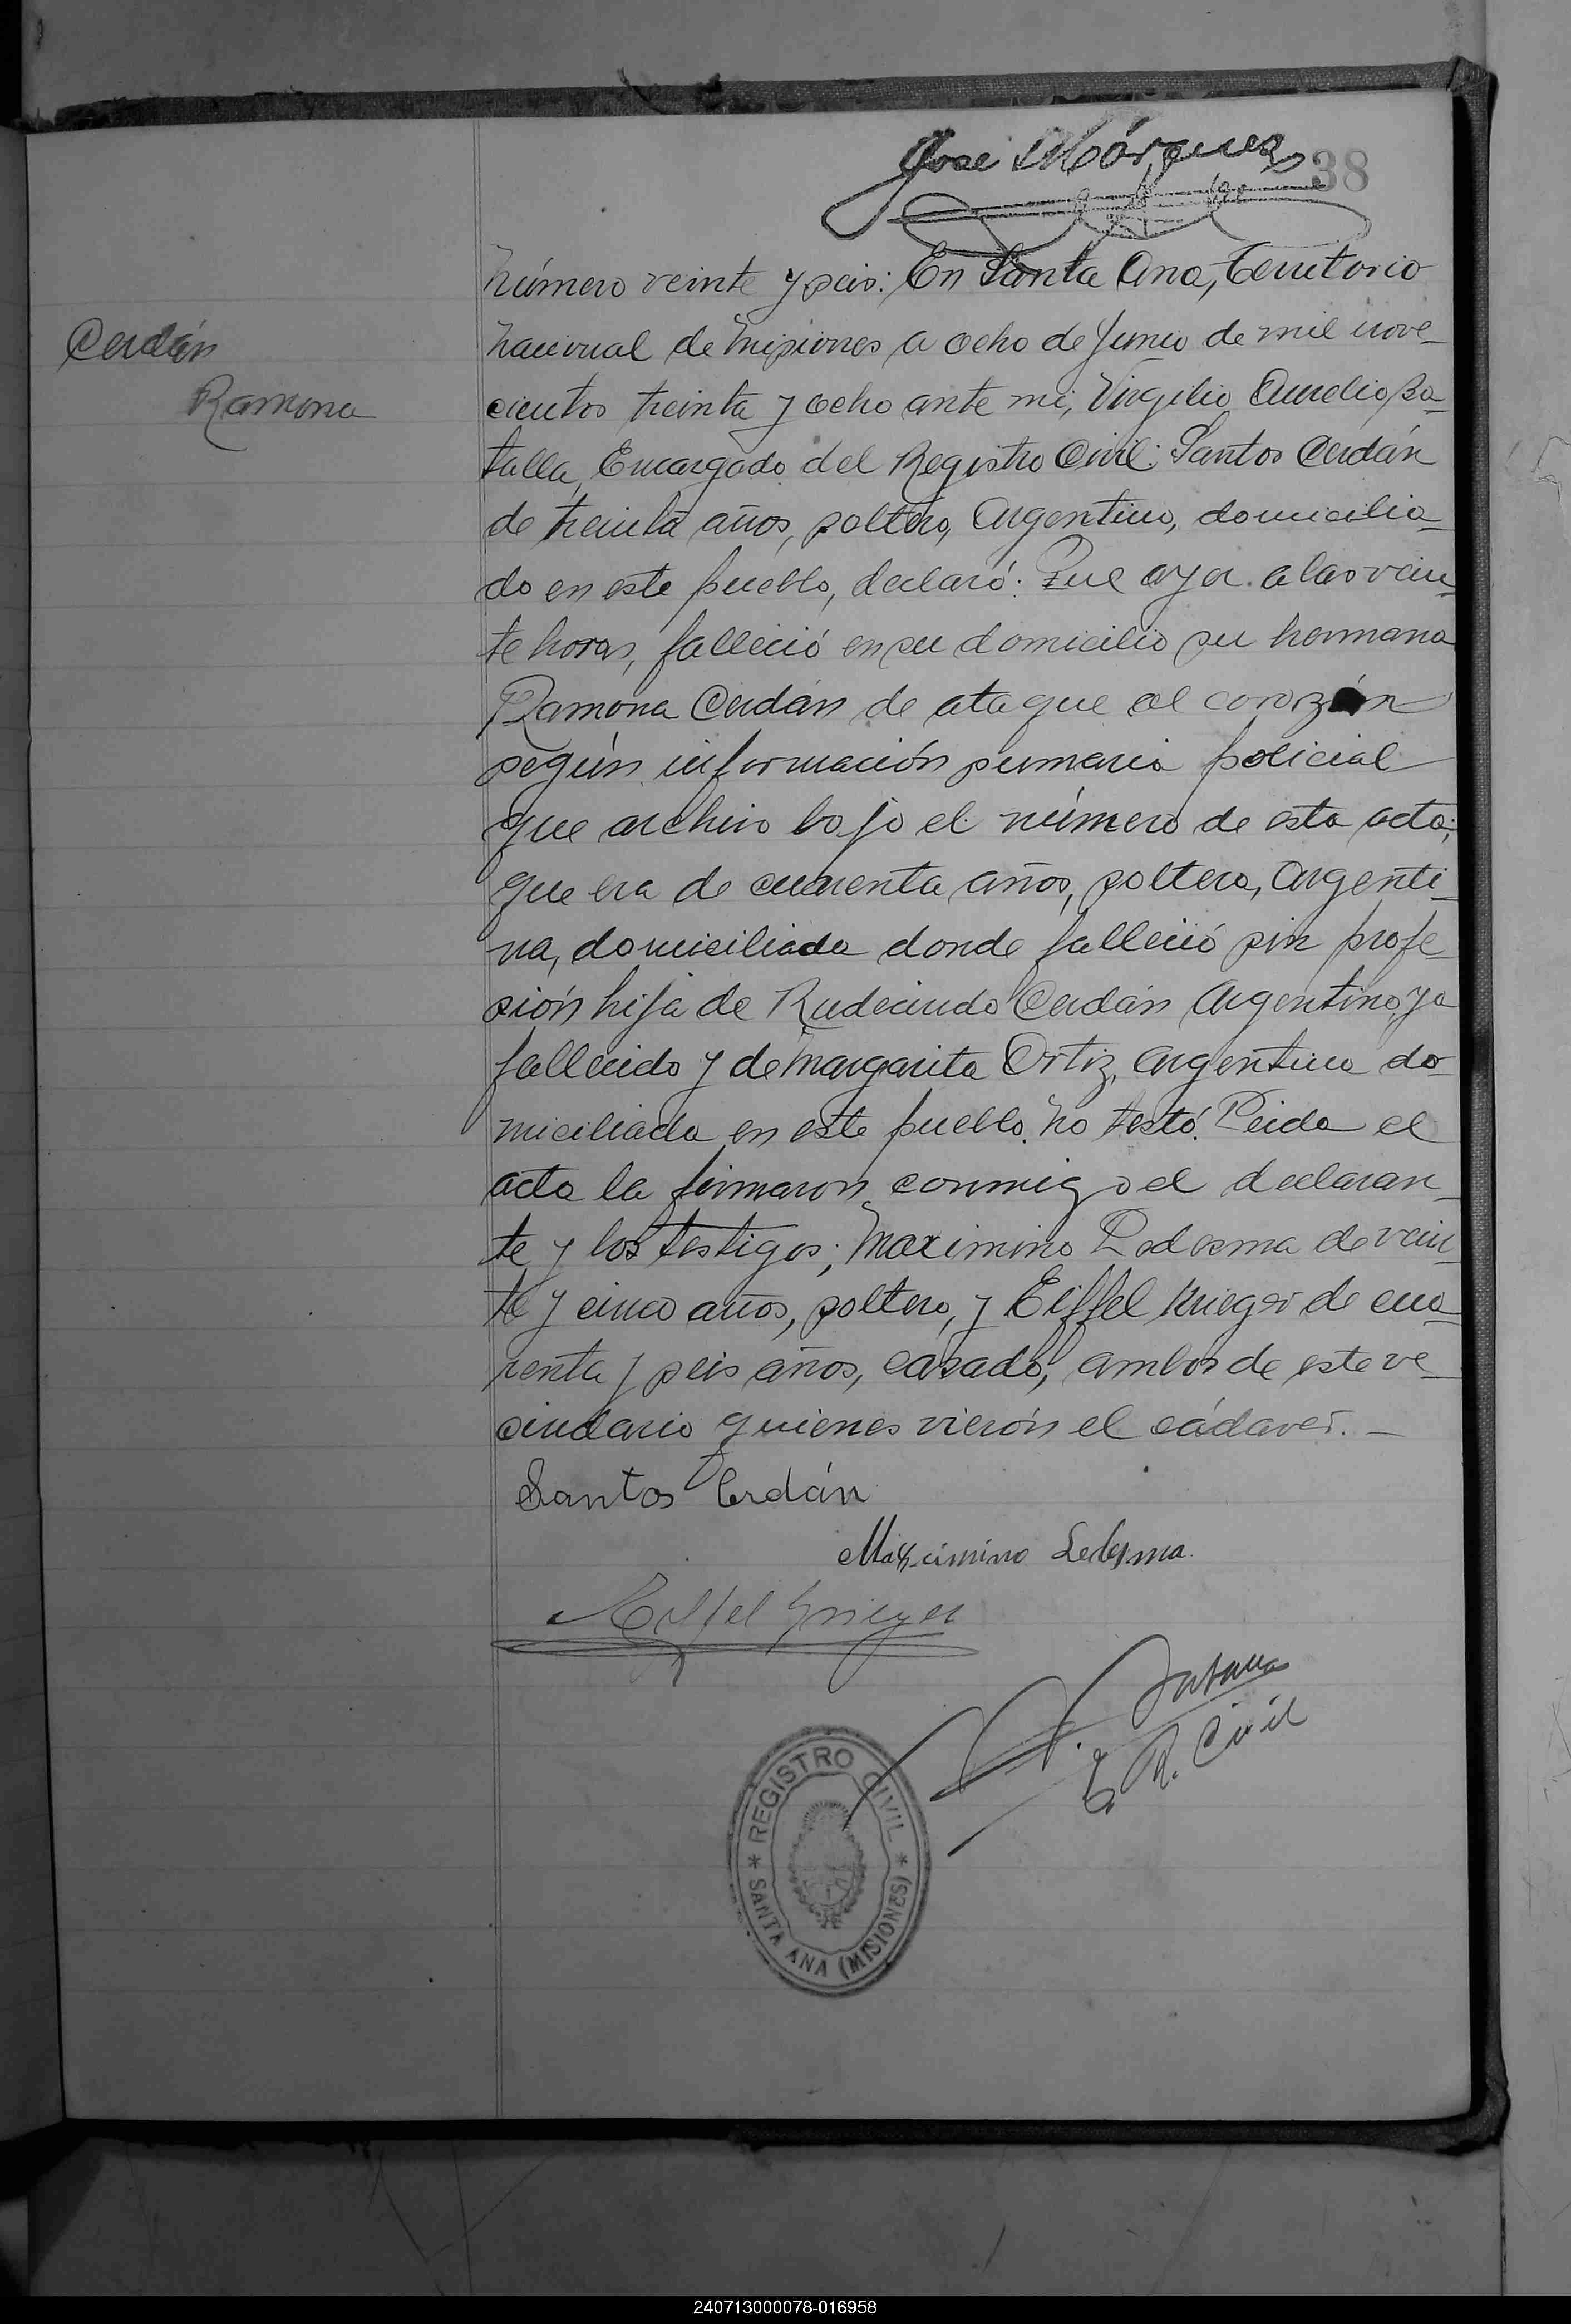 José Márquez
38
Número veinte y seis: En Santa Ana, Territorio
Nacional de Misiones a ocho de Junio de mil nove-
cientos treinta y ocho ante mi, Virgilio Aurelio Sa-
talla, Encargado del Registro Civil: Santos Cerdán
de treinta años, soltero, Argentino, domicilia-
do en este pueblo, declaró: Que ayer a las vein-
te horas, falleció en su domicilio su hermana
Ramona Cerdán de ataque al corazón
según información sumaria policial
que archivo bajo el número de esta acta;
que era de cuarenta años, soltera, Argenti-
na, domiciliada donde falleció sin profe-
sión hija de Rudecindo Cerdán Argentino, ya
fallecido y de Margarita Ortiz, Argentina do-
miciliada en este pueblo. No testó. Leida el
acta la firmaron conmigo el declaran-
te y los testigos; Maximino Ledesma de vein-
te y cinco años, soltero, y Eiffel Krieger de cua-
renta y seis años, casado, ambos de este ve-
cindario quienes vierón el cádaver. -
Cerdán
Ramona
Santos Cerdán
Maxcimino Ledesma.
Eiffel Krieger
E. R. Civil
REGISTRO CIVIL
* SANTA ANA (MISIONES) *
240713000078-016958